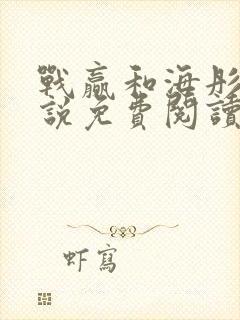 戰贏和海彤
說免費閱讀
虾寫